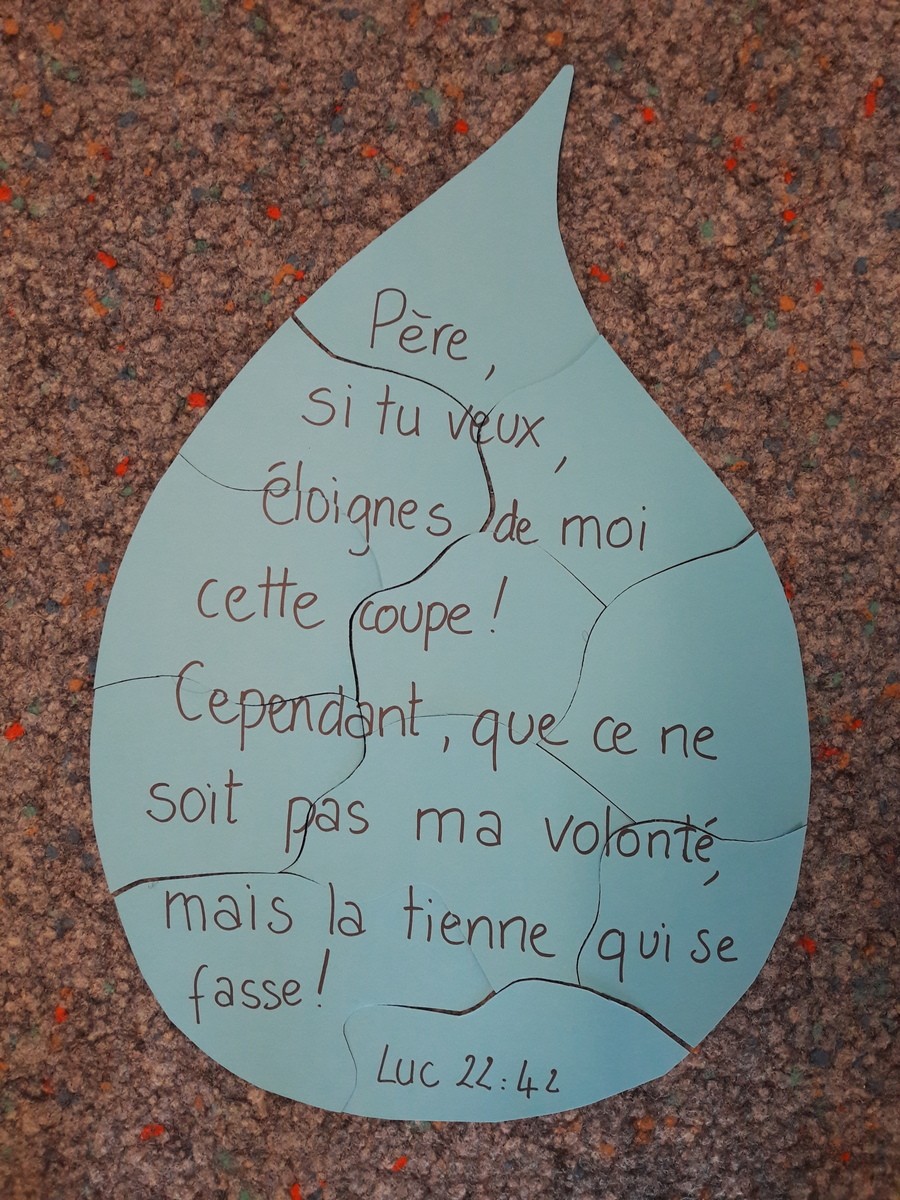 Père,
si tu veux,
éloignes de moi
cette coupe!
Cependant, que ce ne
soit pas ma volonté,
mais la tienne qui se
fasse!
Luc 22:42